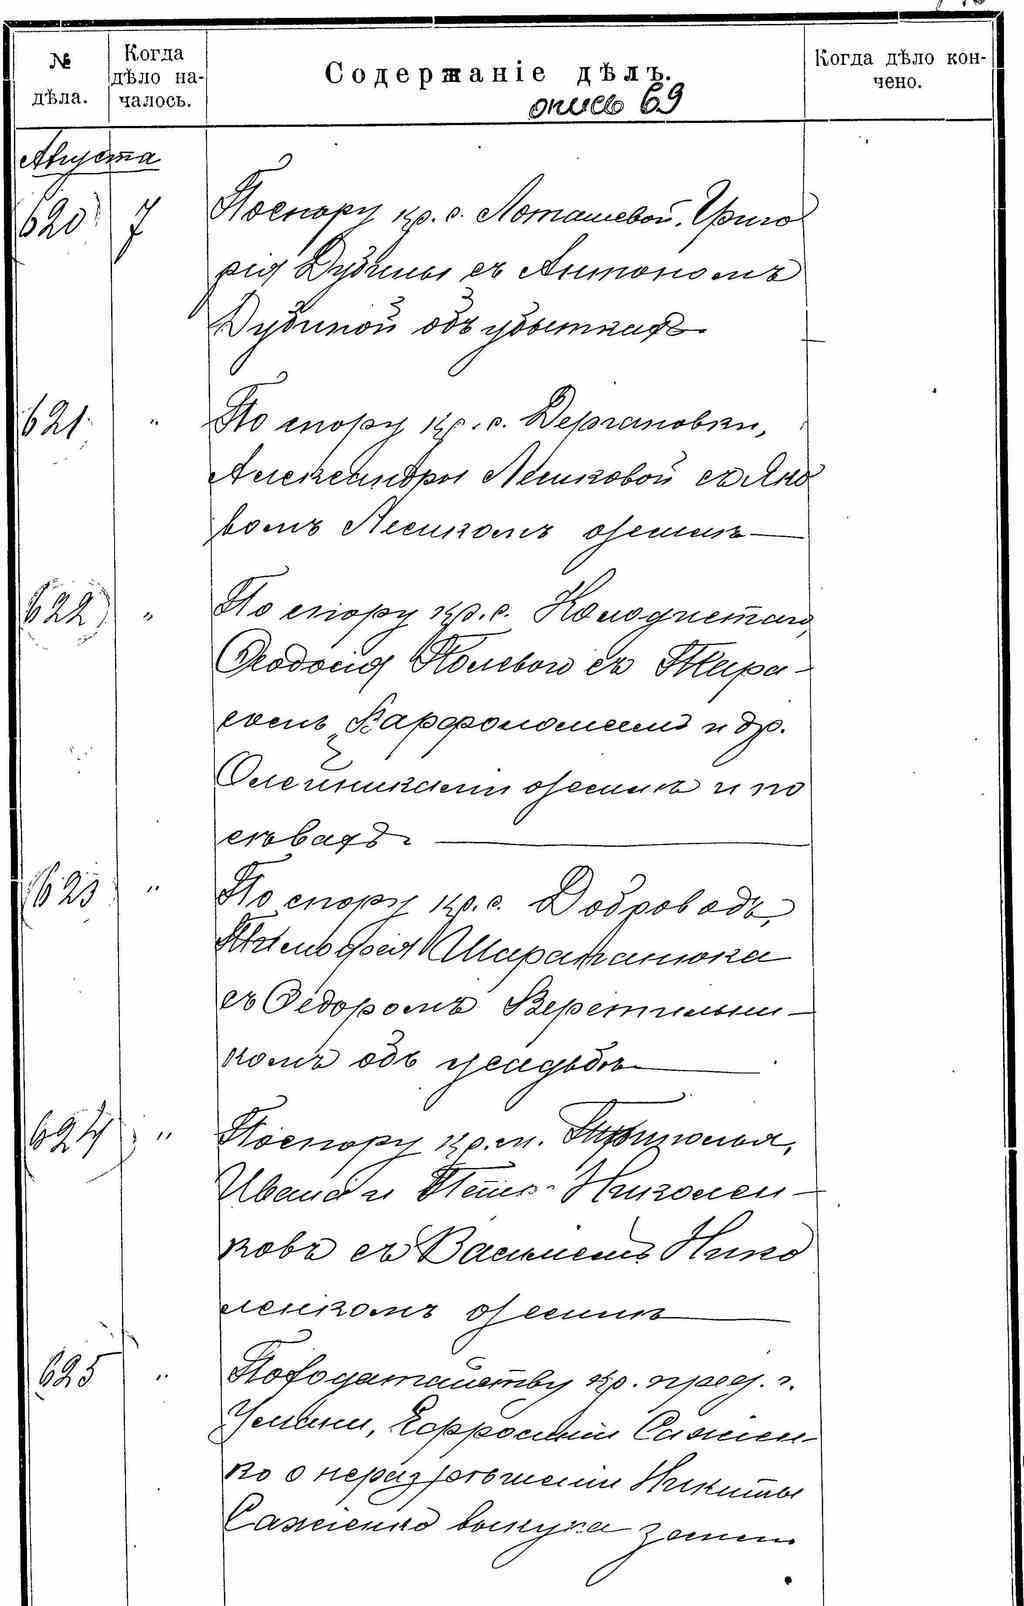 № дѣла.
Когда дѣло на-
чалось.
Содержаніе дѣлъ.
Когда дѣло кон-
чено.
опись 69
Августа
620 7 По спору кр. с. Поташевой, Григо
рія Дубины съ Антономъ
Дубиной объ убыткахъ
621 " По спору кр. с. Дергановки,
Александры Лесиковой съ Яко
вомъ Лесикомъ о землѣ —
622 " По спору кр. с. Колодистаго,
Ѳеодосія Полевого съ Тара-
сомъ, Варфоломеемъ и др.
Олейниками о землѣ и по
сѣвахъ —
623 " По спору кр. с. Доброводъ,
Тимофея Шарапанюка
съ Ѳедоромъ Веретильни-
комъ объ усадьбѣ —
624 " По спору кр. м. Торголья,
Ивана и Николен-
ковъ съ Василіемъ Нико
ленкомъ о землѣ —
625 " По ходатайству кр. пред. г.
Умани, Ефросиніи Сажіен-
ко о неразрѣшеніи Никиты
Сажіенко выкупа земли.